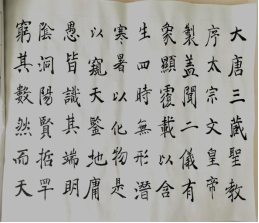 大唐三藏聖教
序太宗文皇帝
製蓋聞二儀有
象顯覆載以含
生四時無形潛
寒暑以化物是
以窺天鑒地庸
愚皆識其端明
陰洞陽賢哲罕
窮其數然而天